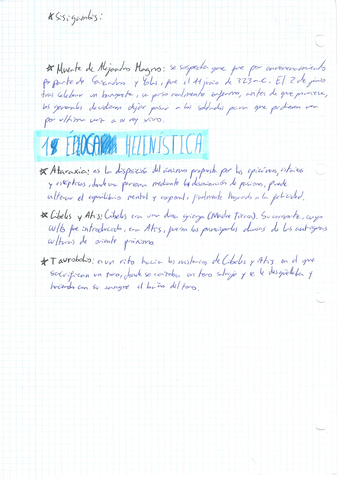 * Sisigambis:
* Muerte de Alejandro Magno: se sospecha que fue por envenenamiento
por parte de Casandro y Yolas, fue el 11 junio de 323 a.C. El 2 de junio
tras celebrar un banquete, se puso realmente enfermo, antes de que pereciese,
los generales decidieron dejar pasar a los soldados para que pudieran ver
por última vez a su rey vivo.
1 ÉPOCA HELENÍSTICA
* Ataraxia: es la disposición del ánimo propuesta por los epicúreos, estoicos
y escépticos, donde una persona mediante la disminución de pasiones, puede
alcanzar el equilibrio mental y corporal, finalmente llegando a la felicidad.
* Cibeles y Atis: Cibeles era una diosa griega (Madre Tierra). Su consorte, cuyo
culto fue introducido, era Atis, fueron los principales dioses de las antiguas
culturas de oriente próximo.
* Taurobolio: es un rito hacia los misterios de Cibeles y Atis, en el que
sacrifican un toro, donde se un toro y se le degollaba y
con su sangre el baño del toro.